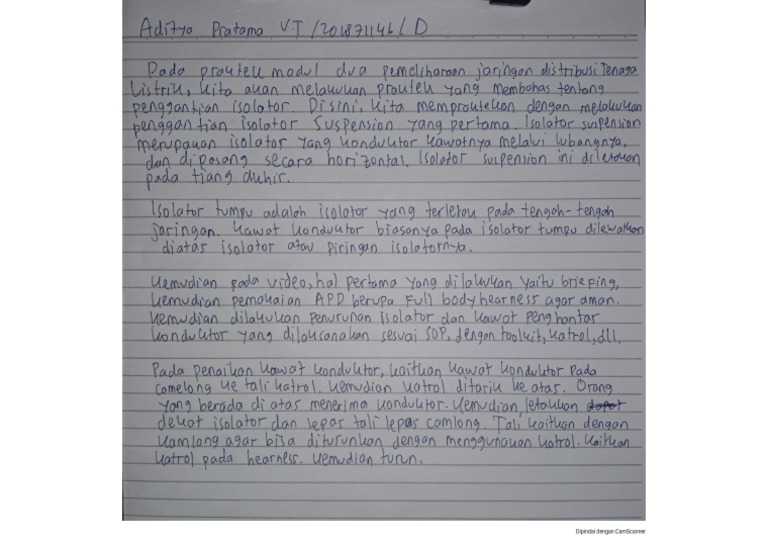 Aditya Pratama V.T /201871146/ D
Pada praktek modul dua pemeliharaan jaringan distribusi Tenaga
Listrik, kita akan melakukan praktek yang membahas tentang
penggantian isolator. Disini, kita mempraktekan dengan melakukan
penggantian isolator Suspension yang pertama. Isolator suspension
merupakan isolator yang konduktor kawatnya melalui lubangnya,
dan dipasang secara horizontal. Isolator suspension ini diletakan
pada tiang akhir.
Isolator tumpu adalah isolator yang terletak pada tengah-tengah
jaringan. Kawat konduktor biasanya pada isolator tumpu dilewatkan
diatas isolator atau piringan isolatornya.
Kemudian pada video, hal pertama yang dilakukan yaitu briefing,
kemudian pemakaian APD berupa Full bodyhearness agar aman.
Kemudian dilakukan penurunan isolator dan kawat penghantar
konduktor yang dilaksanakan sesuai SOP, dengan toolkit, katrol, dll.
Pada penaikan kawat konduktor, kaitkan kawat konduktor pada
camelong ke tali katrol. Kemudian katrol ditarik ke atas. Orang
yang berada di atas menerima konduktor. Kemudian letakkan
dekat isolator dan lepas tali lepas camlong. Tali kaitkan dengan
kamlong agar bisa diturunkan dengan menggunakan katrol. Kaitkan
katrol pada hearness. Kemudian turun.
Dipindai dengan CamScanner